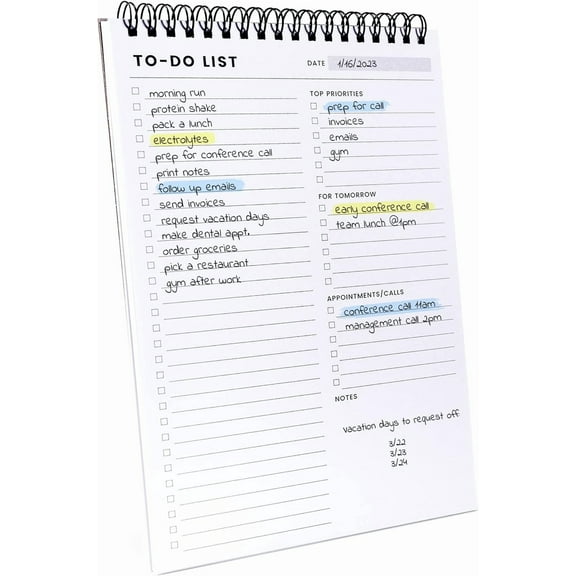 TO-DO LIST
DATE 1/16/2023
morning run
protein shake
pack a lunch
electrolytes
prep for conference call
print notes
follow up emails
send invoices
request vacation days
make dental appt.
order groceries
pick a restaurant
gym after work
TOP PRIORITIES
prep for call
invoices
emails
gym
FOR TOMORROW
early conference call
team lunch @1pm
APPOINTMENTS/CALLS
conference call 11am
management call 2pm
NOTES
Vacation days to request off
3/22
3/23
3/24